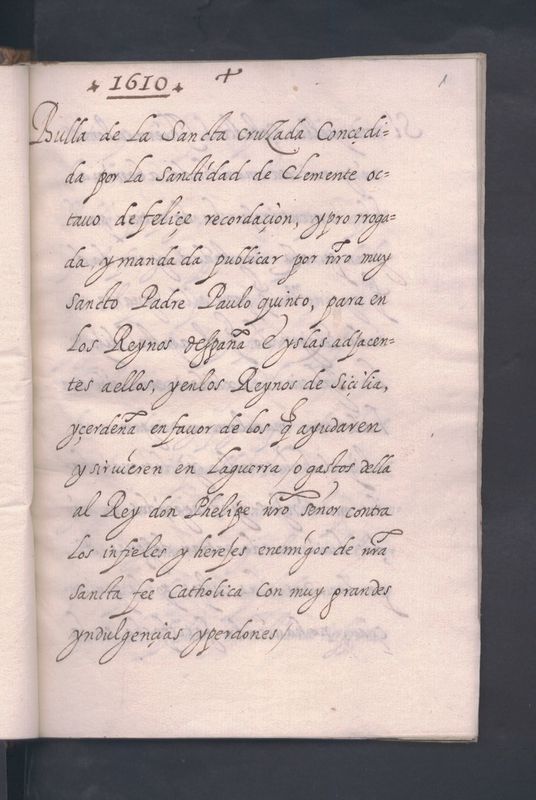 1610 +
1
Bulla de la Sancta cruzada Concedi-
da por la sanctidad de Clemente oc-
tauo de feliçe recordaçion, y pro rroga-
da, y manda da publicar por nr̃o muy
sancto Padre Paulo quinto, para en
los Reynos despaña e yslas adjacen-
tes aellos, y enlos Reynos de Siçilia,
y çerdeña en fauor de los q̃ ayudaren
y siruieren en la guerra / o gastos della
al Rey don Phelipe nr̃o señor contra
los infieles y herejes enemigos de nr̃a
sancta fee catholica con muy grandes
yndulgençias y perdones /